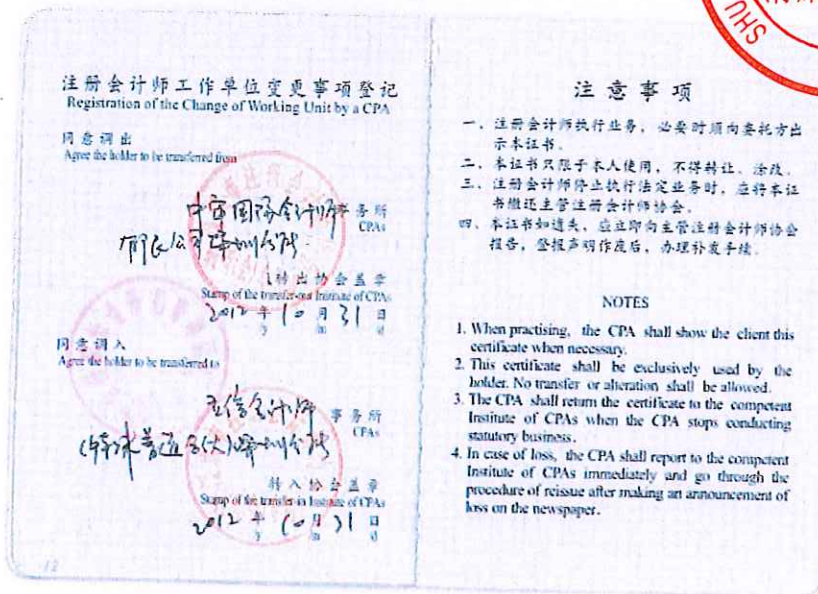 注册会计师工作单位变更事项登记
Registration of the Change of Working Unit by a CPA
同意调出
Agree the holder to be transferred from
中审国际会计师事务所
CPAs
有限公司深圳分所
转出协会盖章
Stamp of the transfer-out Institute of CPAs
2012年10月31日
y m d
同意调入
Agree the holder to be transferred to
立信会计师事务所
CPAs
(特殊普通合伙)深圳分所
转入协会盖章
Stamp of the transfer-in Institute of CPAs
2012年10月31日
y m d
12
注意事项
一、注册会计师执行业务，必要时须向委托方出
示本证书。
二、本证书只限于本人使用，不得转让、涂改。
三、注册会计师停止执行法定业务时，应将本证
书缴还主管注册会计师协会。
四、本证书如遗失，应立即向主管注册会计师协会
报告，登报声明作废后，办理补发手续。
NOTES
1. When practising, the CPA shall show the client this
certificate when necessary.
2. This certificate shall be exclusively used by the
holder. No transfer or alteration shall be allowed.
3. The CPA shall return the certificate to the competent
Institute of CPAs when the CPA stops conducting
statutory business.
4. In case of loss, the CPA shall report to the competent
Institute of CPAs immediately and go through the
procedure of reissue after making an announcement of
loss on the newspaper.
SHU